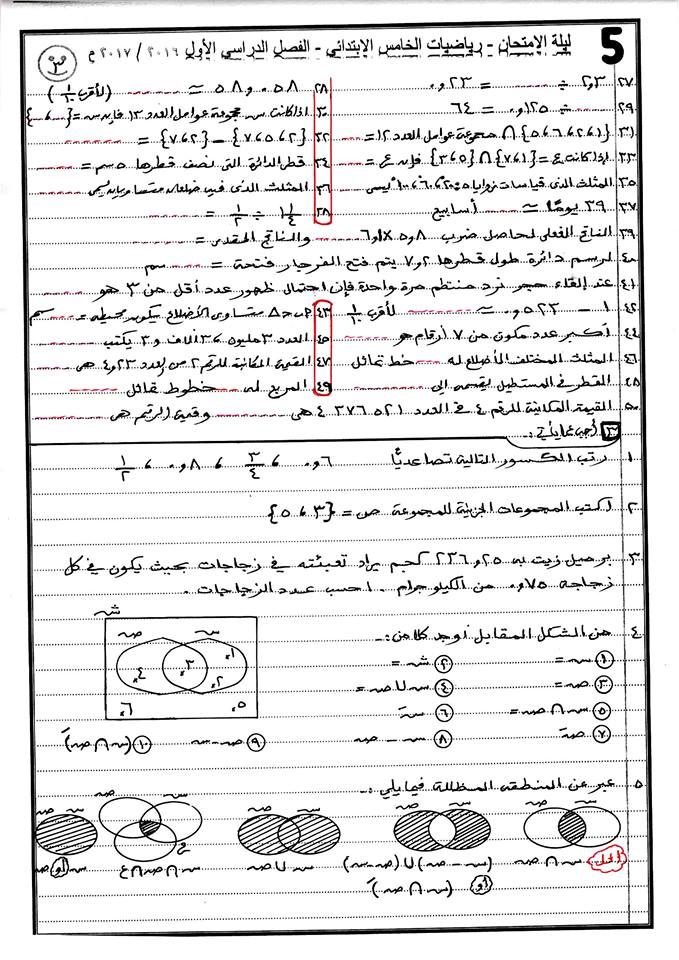 5 ليلة الإمتحان - رياضيات الخامس الإبتدائي - الفصل الدراسي الأول ٢٠١٦ / ٢٠١٧ م ٣
٢٧ ٢٫٣ ÷ ........ = ٠٫٢٣
٢٨ ٥٨٫٠٥٨ ≈ ........ (لأقرب ١/١٠)
٢٩ ........ ÷ ٠٫١٢٥ = ٦٤
٣٠ اذا كانت س مجموعة عوامل العدد ١٣ فإن س = {....،....}
٣١ {١،٢،٦،٥} ∩ مجموعة عوامل العدد ١٢ = ........
٣٢ {٢،٥،٧} - {٢،٧} = ........
٣٣ اذا كانت ع = {١،٧} ∩ {٥،٣} فإن ع = ........
٣٤ قطر الدائرة التى نصف قطرها ٥ سم = ........
٣٥ المثلث الذى قياسات زواياه: ٢٠°، ٦٠°، ١٠٠° يسمى ........
٣٦ المثلث الذى فيه ضلعان متساويان يسمى
٣٧ ٣٩ يومًا ≈ ........ أسابيع
٣٨ ١ ١/٤ ÷ ١/٢ = ........
٣٩ الناتج الفعلى لحاصل ضرب ٥٫٨ × ٦٫١ ........ والناتج التقديرى = ........
٤٠ لرسم دائرة طول قطرها ٧٫٢ يتم فتح الفرجار فتحة = ........ سم
٤١ عند إلقاء حجر نرد منتظم مرة واحدة فإن احتمال ظهور عدد أقل من ٣ هو ........
٤٢ ١ - ٠٫٥٢٣ ≈ ........ لأقرب ١/١٠
٤٣ Δ متساوى الأضلاع يكون محيطه = ........ سم
٤٤ أكبر عدد مكون من ٧ أرقام هو ........
٤٥ العدد ٣ مليون، ٣٦ الاف و ٣ يكتب
٤٦ المثلث المختلف الأضلاع له ........ خط تماثل
٤٧ القيمة المكانية للرقم ٢ من العدد ٤٫٢٣ هى ........
٤٨ القطر فى المستطيل يقسمه إلى ........
٤٩ المربع له ........ خطوط تماثل
٥٠ القيمة المكانية للرقم ٤ فى العدد ٤٣٧٦٥٢١ هى ........ وقيمة الرقم هى ........
٣ أجب عما يأتى:
١ رتب الكسور التالية تصاعديًا ٠٫٦ ، ٣/٤ ، ٠٫٨ ، ١/٢
٢ اكتب المجموعات الجزئية للمجموعة ص = {٣،٥}
٣ برميل زيت به ٢٣٦٫٢٥ كجم يراد تعبئته فى زجاجات بحيث يكون فى كل
زجاجه ٠٫٧٥ من الكيلو جرام . احسب عدد الزجاجات .
٤ من الشكل المقابل أوجد كلا من:-
١ س = ٢ ش =
٣ ص = ٤ س ∪ ص =
٥ س ∩ ص = ٦ سَ
٧ صَ ٨ س - ص ٩ ص - س ١٠ (س ∩ ص)َ
ش ص س
١ ٢ ٣ ٤ ٥ ٦
٥ عبر عن المنطقه المظللة فيما يلى:-
س ص س ص س ص س ص ع س ص
الحل س ∩ ص (س - ص) ∪ (ص - س) س ∪ ص س ∩ ص ∩ ع س أو ص
أو (س ∩ ص)َ